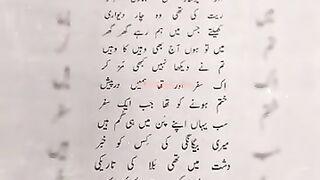 ریت کی تھی وہ چار دیواری
کھیلتے جس میں ہم رہے گھر گھر
میں تو ہوں آج بھی وہیں کا وہیں
تم نے دیکھا نہیں کبھی مڑ کر
اک سفر اور تھا ہمیں درپیش
ختم ہونے کو تھا جب ایک سفر
سب یہاں اپنے پن میں ہی گم ہیں
میری بیگانگی کی کس کو خبر
دشت میں تھی بلا کی تاریکی